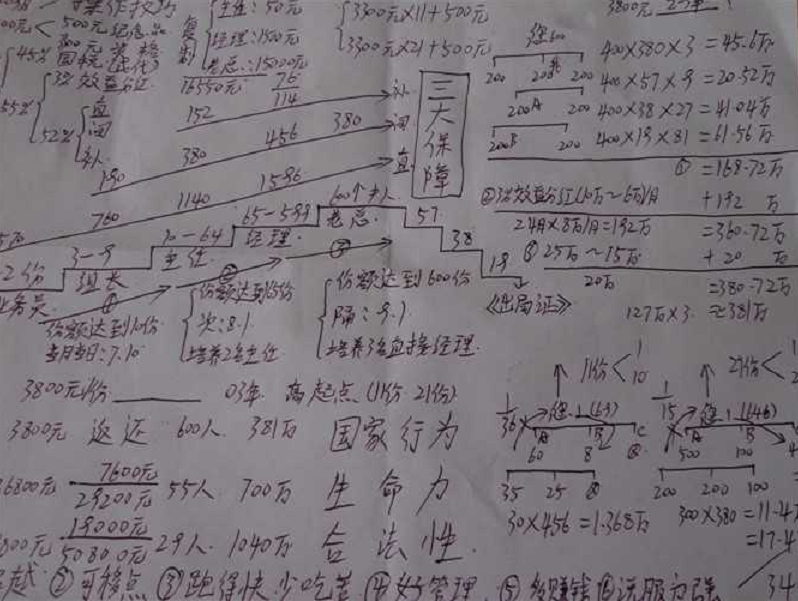 500元纪念品
45%
55%
52%
3%效益分红
主任:50元
经理:1500元
老总:15000元
16550元
3300元×11+500元
3300元×21+500元
3800元
76
114
152
190
380
456
380
1140
1596
760
三大保障
补
间
直
600
200 200 200
200A 200
200B 200
400×380×3=45.6万
400×57×9=20.52万
400×38×27=41.04万
400×19×81=61.56万
①=168.72万
②3%效益分红(10万~6万)/月 +192万
24月×8万/月=192万 =360.72万
③25万~15万 +20万
20万 =380.72万
127万×3≈381万
600个主人
老总
65-599
经理
10-64
主任
3-9
组长
2份
业务员
57
38
19
《出局证》
份额达到10份
当月当日:7.10
份额达到65份
次:8.1
培养2名主任
份额达到600份
隔:9.1
培养3名直接经理
3800元/份 03年 高起点(11份 21份)
3800元 返还 600人 381万 国家行为
36800元 7600元 29200元 55人 700万 生命力
19000元 50800元 29人 1040万 合法性
11份
1
10
21份
60 8
35 25
500 100
200 200 100
30×456=1.368万
300×380=11.4万
=17.4
②可移点 ③跑得快 少吃苦 ④好管理 ⑤多赚钱 ⑥说服力强
34